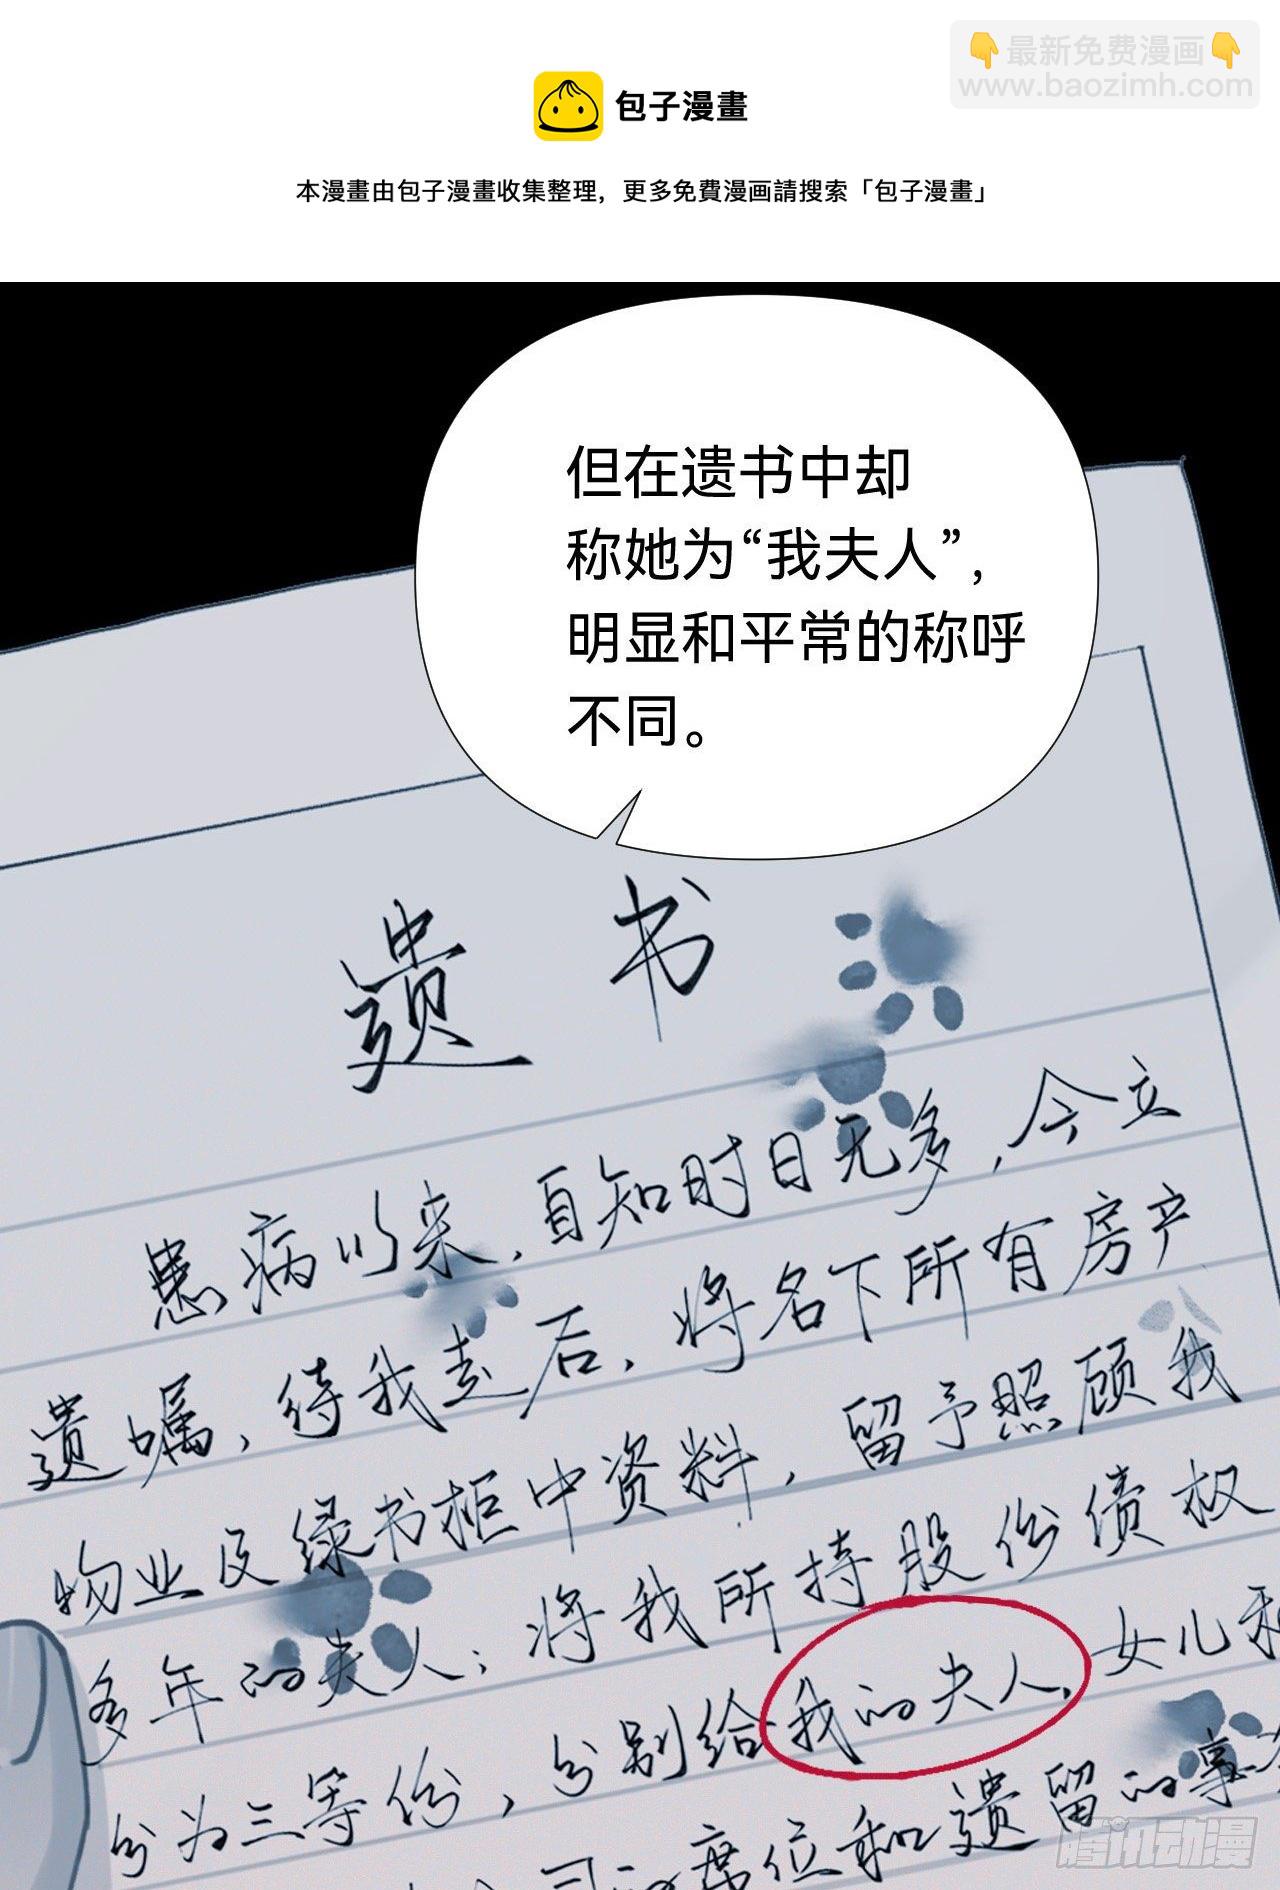 最新免费漫画
www.baozimh.com
包子漫畫
本漫畫由包子漫畫收集整理，更多免費漫画請搜索「包子漫畫」
但在遗书中却
称她为“我夫人”，
明显和平常的称呼
不同。
遗书
患病以来，自知时日无多，今立
遗嘱，待我走后，将名下所有房产
物业及绿书柜中资料，留予照顾我
多年的夫人；将我所持股份债权
分为三等份，分别给我的夫人，女儿和
司 席位和遗留的事务
腾讯动漫